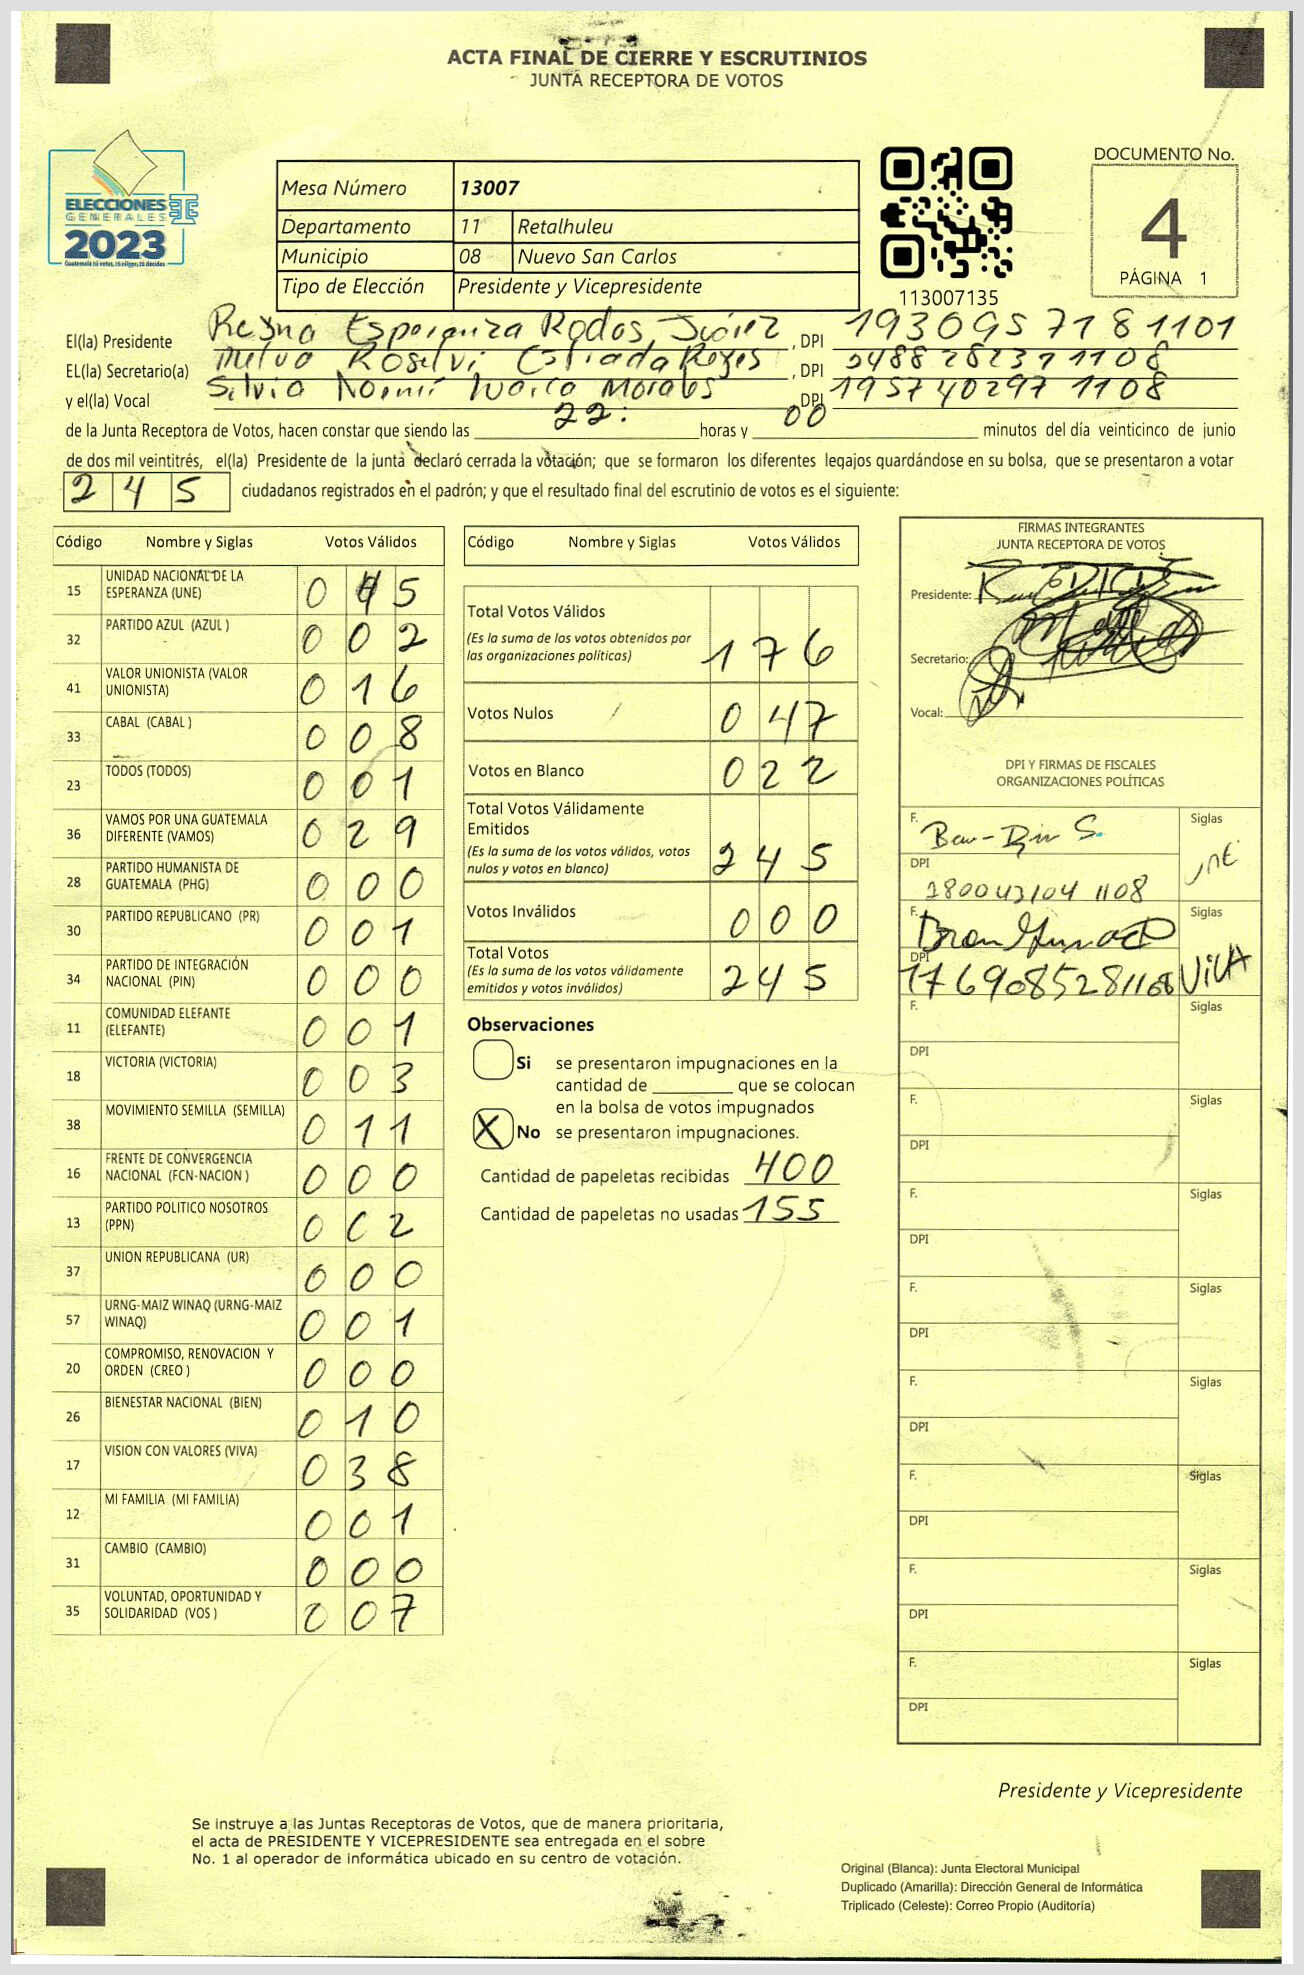 ACTA FINAL DE CIERRE Y ESCRUTINIOS
JUNTA RECEPTORA DE VOTOS
ELECCIONES
GENERALES
2023
Mesa Número 13007
Departamento 11 Retalhuleu
Municipio 08 Nuevo San Carlos
Tipo de Elección Presidente y Vicepresidente
113007135
DOCUMENTO No.
4
PÁGINA 1
El(la) Presidente Reyna Esperanza Rodas Juárez , DPI 1930957181101
EL(la) Secretario(a) Roselvi Estrada Reyes , DPI
y el(la) Vocal Silvia Noemí Morales , DPI 1957402971108
de la Junta Receptora de Votos, hacen constar que siendo las 22: horas y 00 minutos del día veinticinco de junio
de dos mil veintitrés, el(la) Presidente de la junta declaró cerrada la votación; que se formaron los diferentes legajos guardándose en su bolsa, que se presentaron a votar
245 ciudadanos registrados en el padrón; y que el resultado final del escrutinio de votos es el siguiente:
Código Nombre y Siglas Votos Válidos
15 UNIDAD NACIONAL DE LA ESPERANZA (UNE) 0 4 5
32 PARTIDO AZUL (AZUL ) 0 0 2
41 VALOR UNIONISTA (VALOR UNIONISTA) 0 1 6
33 CABAL (CABAL ) 0 0 8
23 TODOS (TODOS) 0 0 1
36 VAMOS POR UNA GUATEMALA DIFERENTE (VAMOS) 0 2 9
28 PARTIDO HUMANISTA DE GUATEMALA (PHG) 0 0 0
30 PARTIDO REPUBLICANO (PR) 0 0 1
34 PARTIDO DE INTEGRACIÓN NACIONAL (PIN) 0 0 0
11 COMUNIDAD ELEFANTE (ELEFANTE) 0 0 1
18 VICTORIA (VICTORIA) 0 0 3
38 MOVIMIENTO SEMILLA (SEMILLA) 0 1 1
16 FRENTE DE CONVERGENCIA NACIONAL (FCN-NACION ) 0 0 0
13 PARTIDO POLITICO NOSOTROS (PPN) 0 0 2
37 UNION REPUBLICANA (UR) 0 0 0
57 URNG-MAIZ WINAQ (URNG-MAIZ WINAQ) 0 0 1
20 COMPROMISO, RENOVACION Y ORDEN (CREO ) 0 0 0
26 BIENESTAR NACIONAL (BIEN) 0 1 0
17 VISION CON VALORES (VIVA) 0 3 8
12 MI FAMILIA (MI FAMILIA) 0 0 1
31 CAMBIO (CAMBIO) 0 0 0
35 VOLUNTAD, OPORTUNIDAD Y SOLIDARIDAD (VOS ) 0 0 7
Código Nombre y Siglas Votos Válidos
Total Votos Válidos
(Es la suma de los votos obtenidos por
las organizaciones políticas) 1 7 6
Votos Nulos 0 4 7
Votos en Blanco 0 2 2
Total Votos Válidamente
Emitidos
(Es la suma de los votos válidos, votos
nulos y votos en blanco) 2 4 5
Votos Inválidos 0 0 0
Total Votos
(Es la suma de los votos válidamente
emitidos y votos inválidos) 2 4 5
Observaciones
Si se presentaron impugnaciones en la
cantidad de ________ que se colocan
en la bolsa de votos impugnados
X No se presentaron impugnaciones.
Cantidad de papeletas recibidas 400
Cantidad de papeletas no usadas 155
FIRMAS INTEGRANTES
JUNTA RECEPTORA DE VOTOS
Presidente:
Secretario:
Vocal:
DPI Y FIRMAS DE FISCALES
ORGANIZACIONES POLÍTICAS
F. Siglas
DPI UNE
180043104 1108
F. Siglas
DPI
1769085281108 VIVA
F. Siglas
DPI
F. Siglas
DPI
F. Siglas
DPI
F. Siglas
DPI
F. Siglas
DPI
F. Siglas
DPI
F. Siglas
DPI
F. Siglas
DPI
Presidente y Vicepresidente
Se instruye a las Juntas Receptoras de Votos, que de manera prioritaria,
el acta de PRESIDENTE Y VICEPRESIDENTE sea entregada en el sobre
No. 1 al operador de informática ubicado en su centro de votación.
Original (Blanca): Junta Electoral Municipal
Duplicado (Amarilla): Dirección General de Informática
Triplicado (Celeste): Correo Propio (Auditoría)